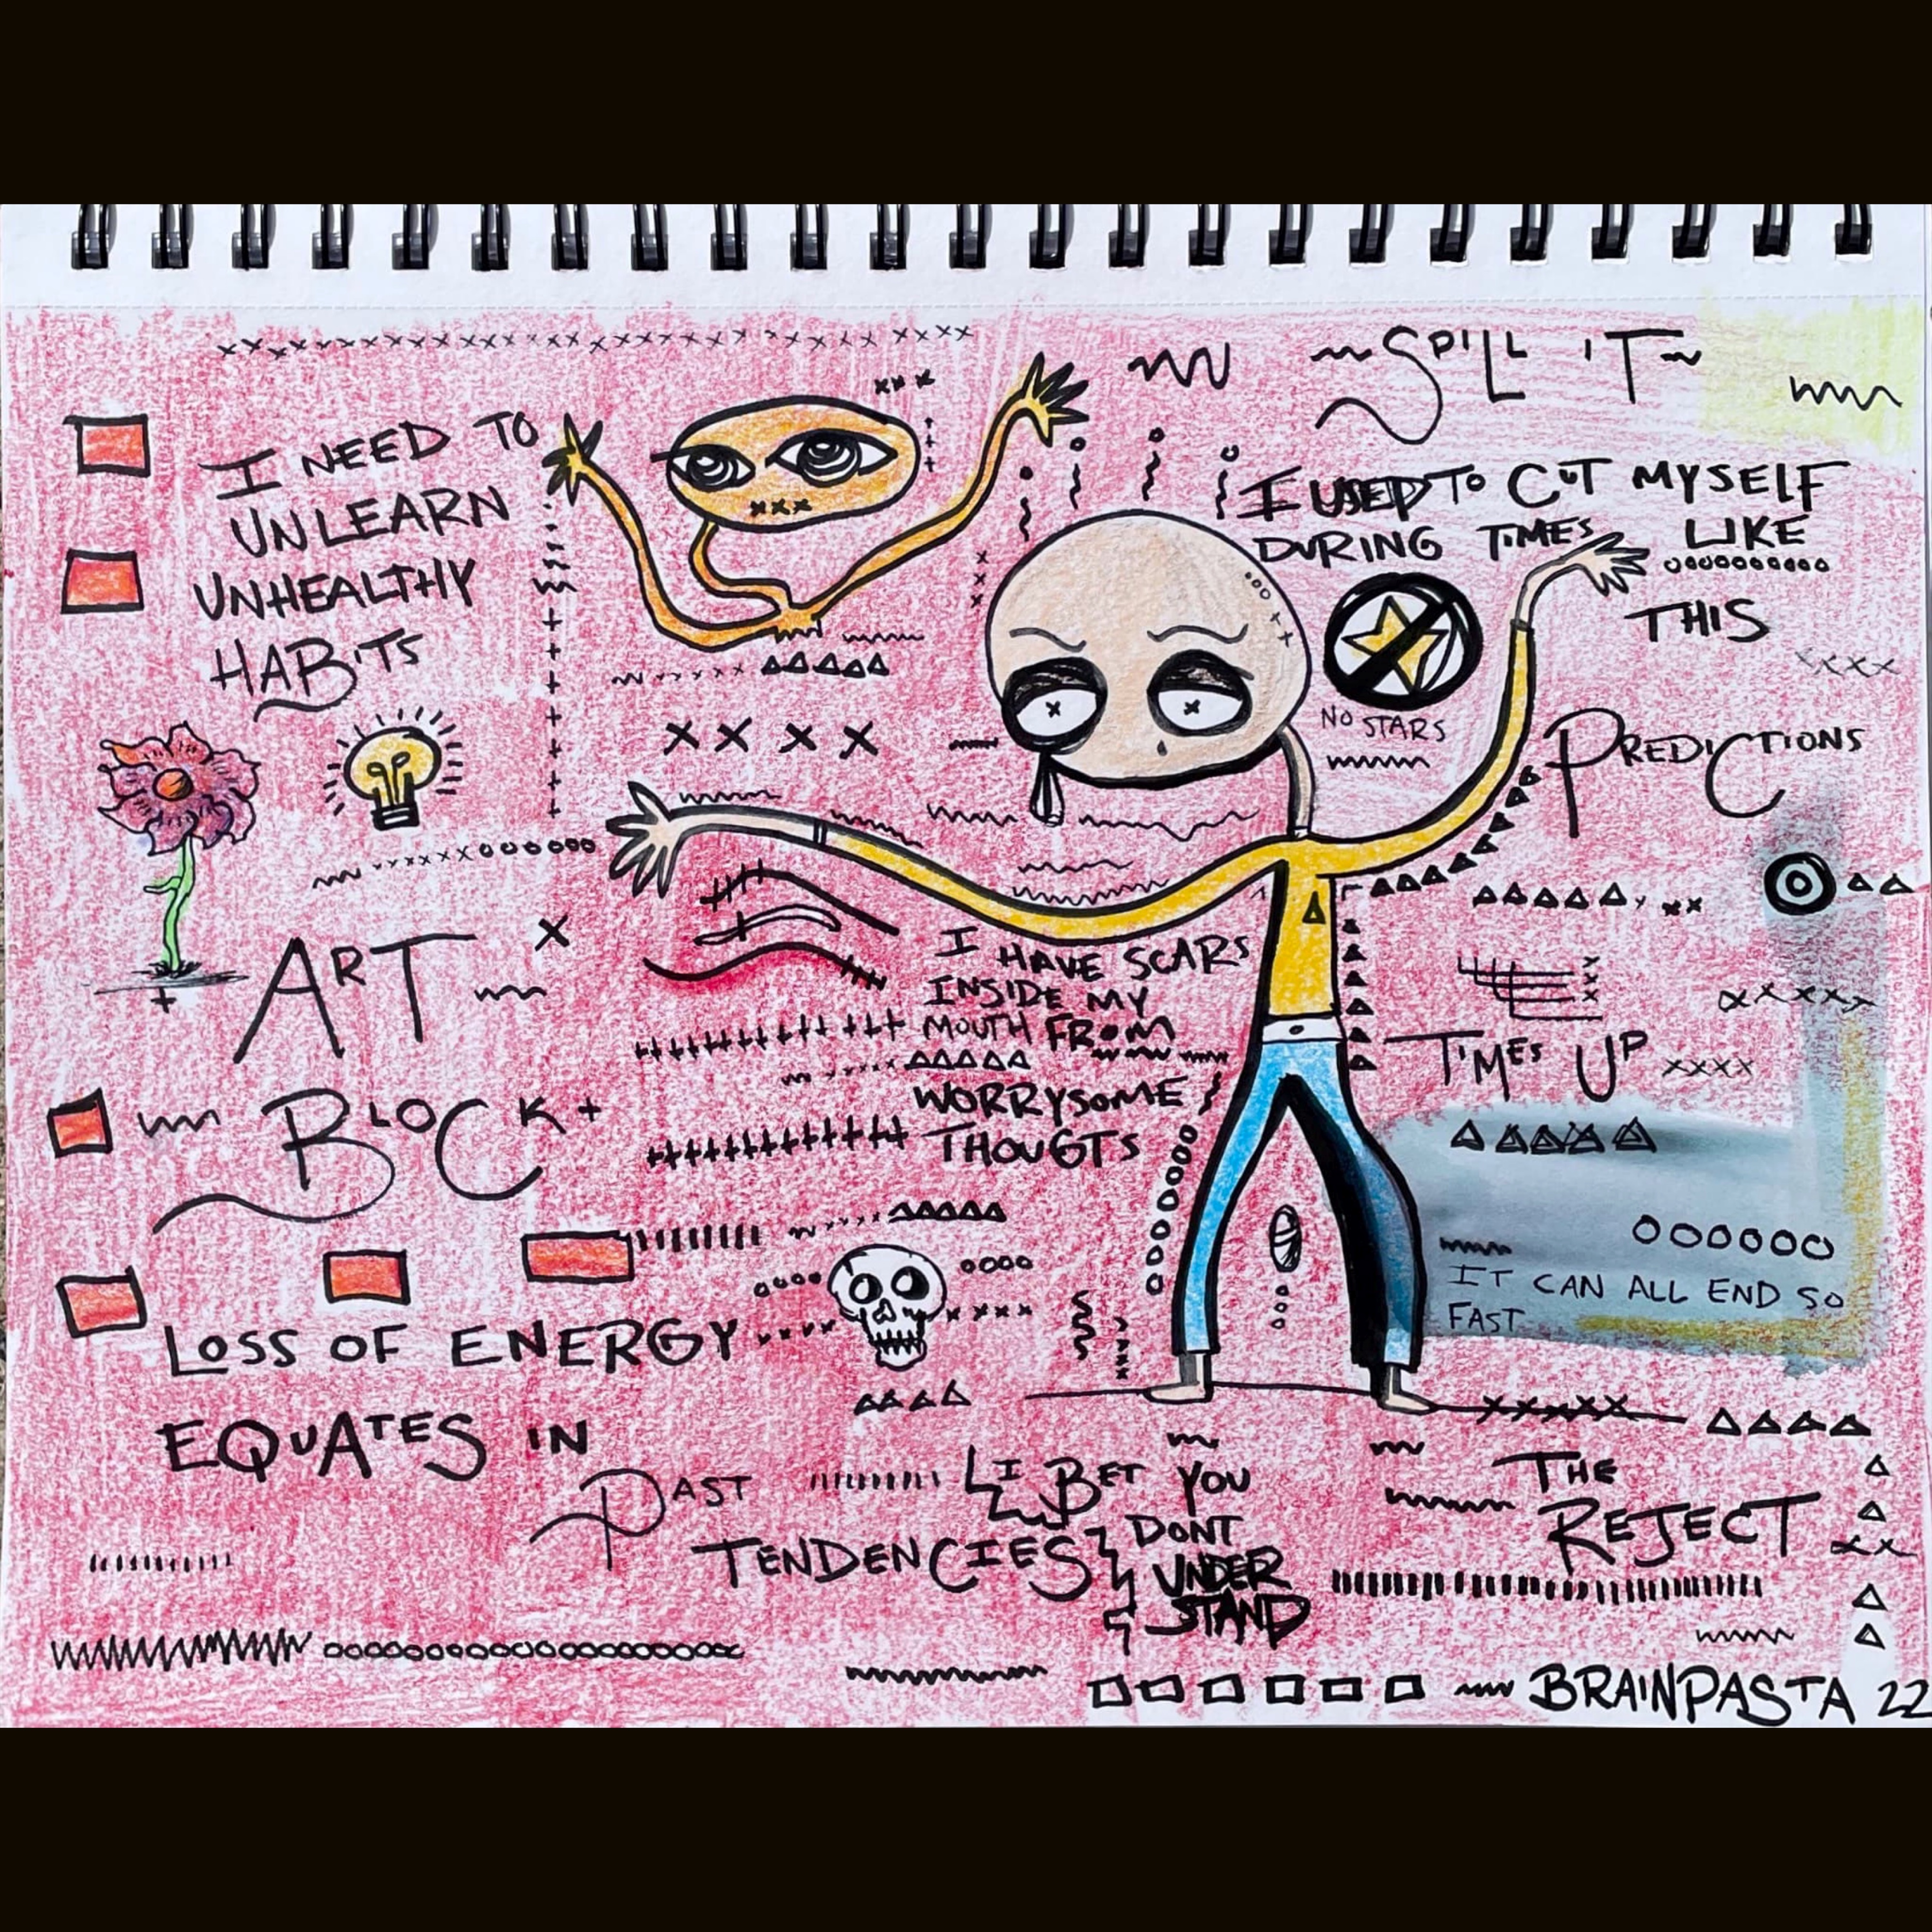 SPILL IT
I NEED TO
UNLEARN
UNHEALTHY
HABITS
I USED TO CUT MYSELF
DURING TIMES LIKE
THIS
NO STARS
PREDICTIONS
ART
BLOCK
I HAVE SCARS
INSIDE MY
MOUTH FROM
WORRYSOME
THOUGTS
TIMES UP
IT CAN ALL END SO
FAST
LOSS OF ENERGY
EQUATES IN
PAST
TENDENCIES
I BET YOU
DONT
UNDER
STAND
THE
REJECT
BRAINPASTA 22